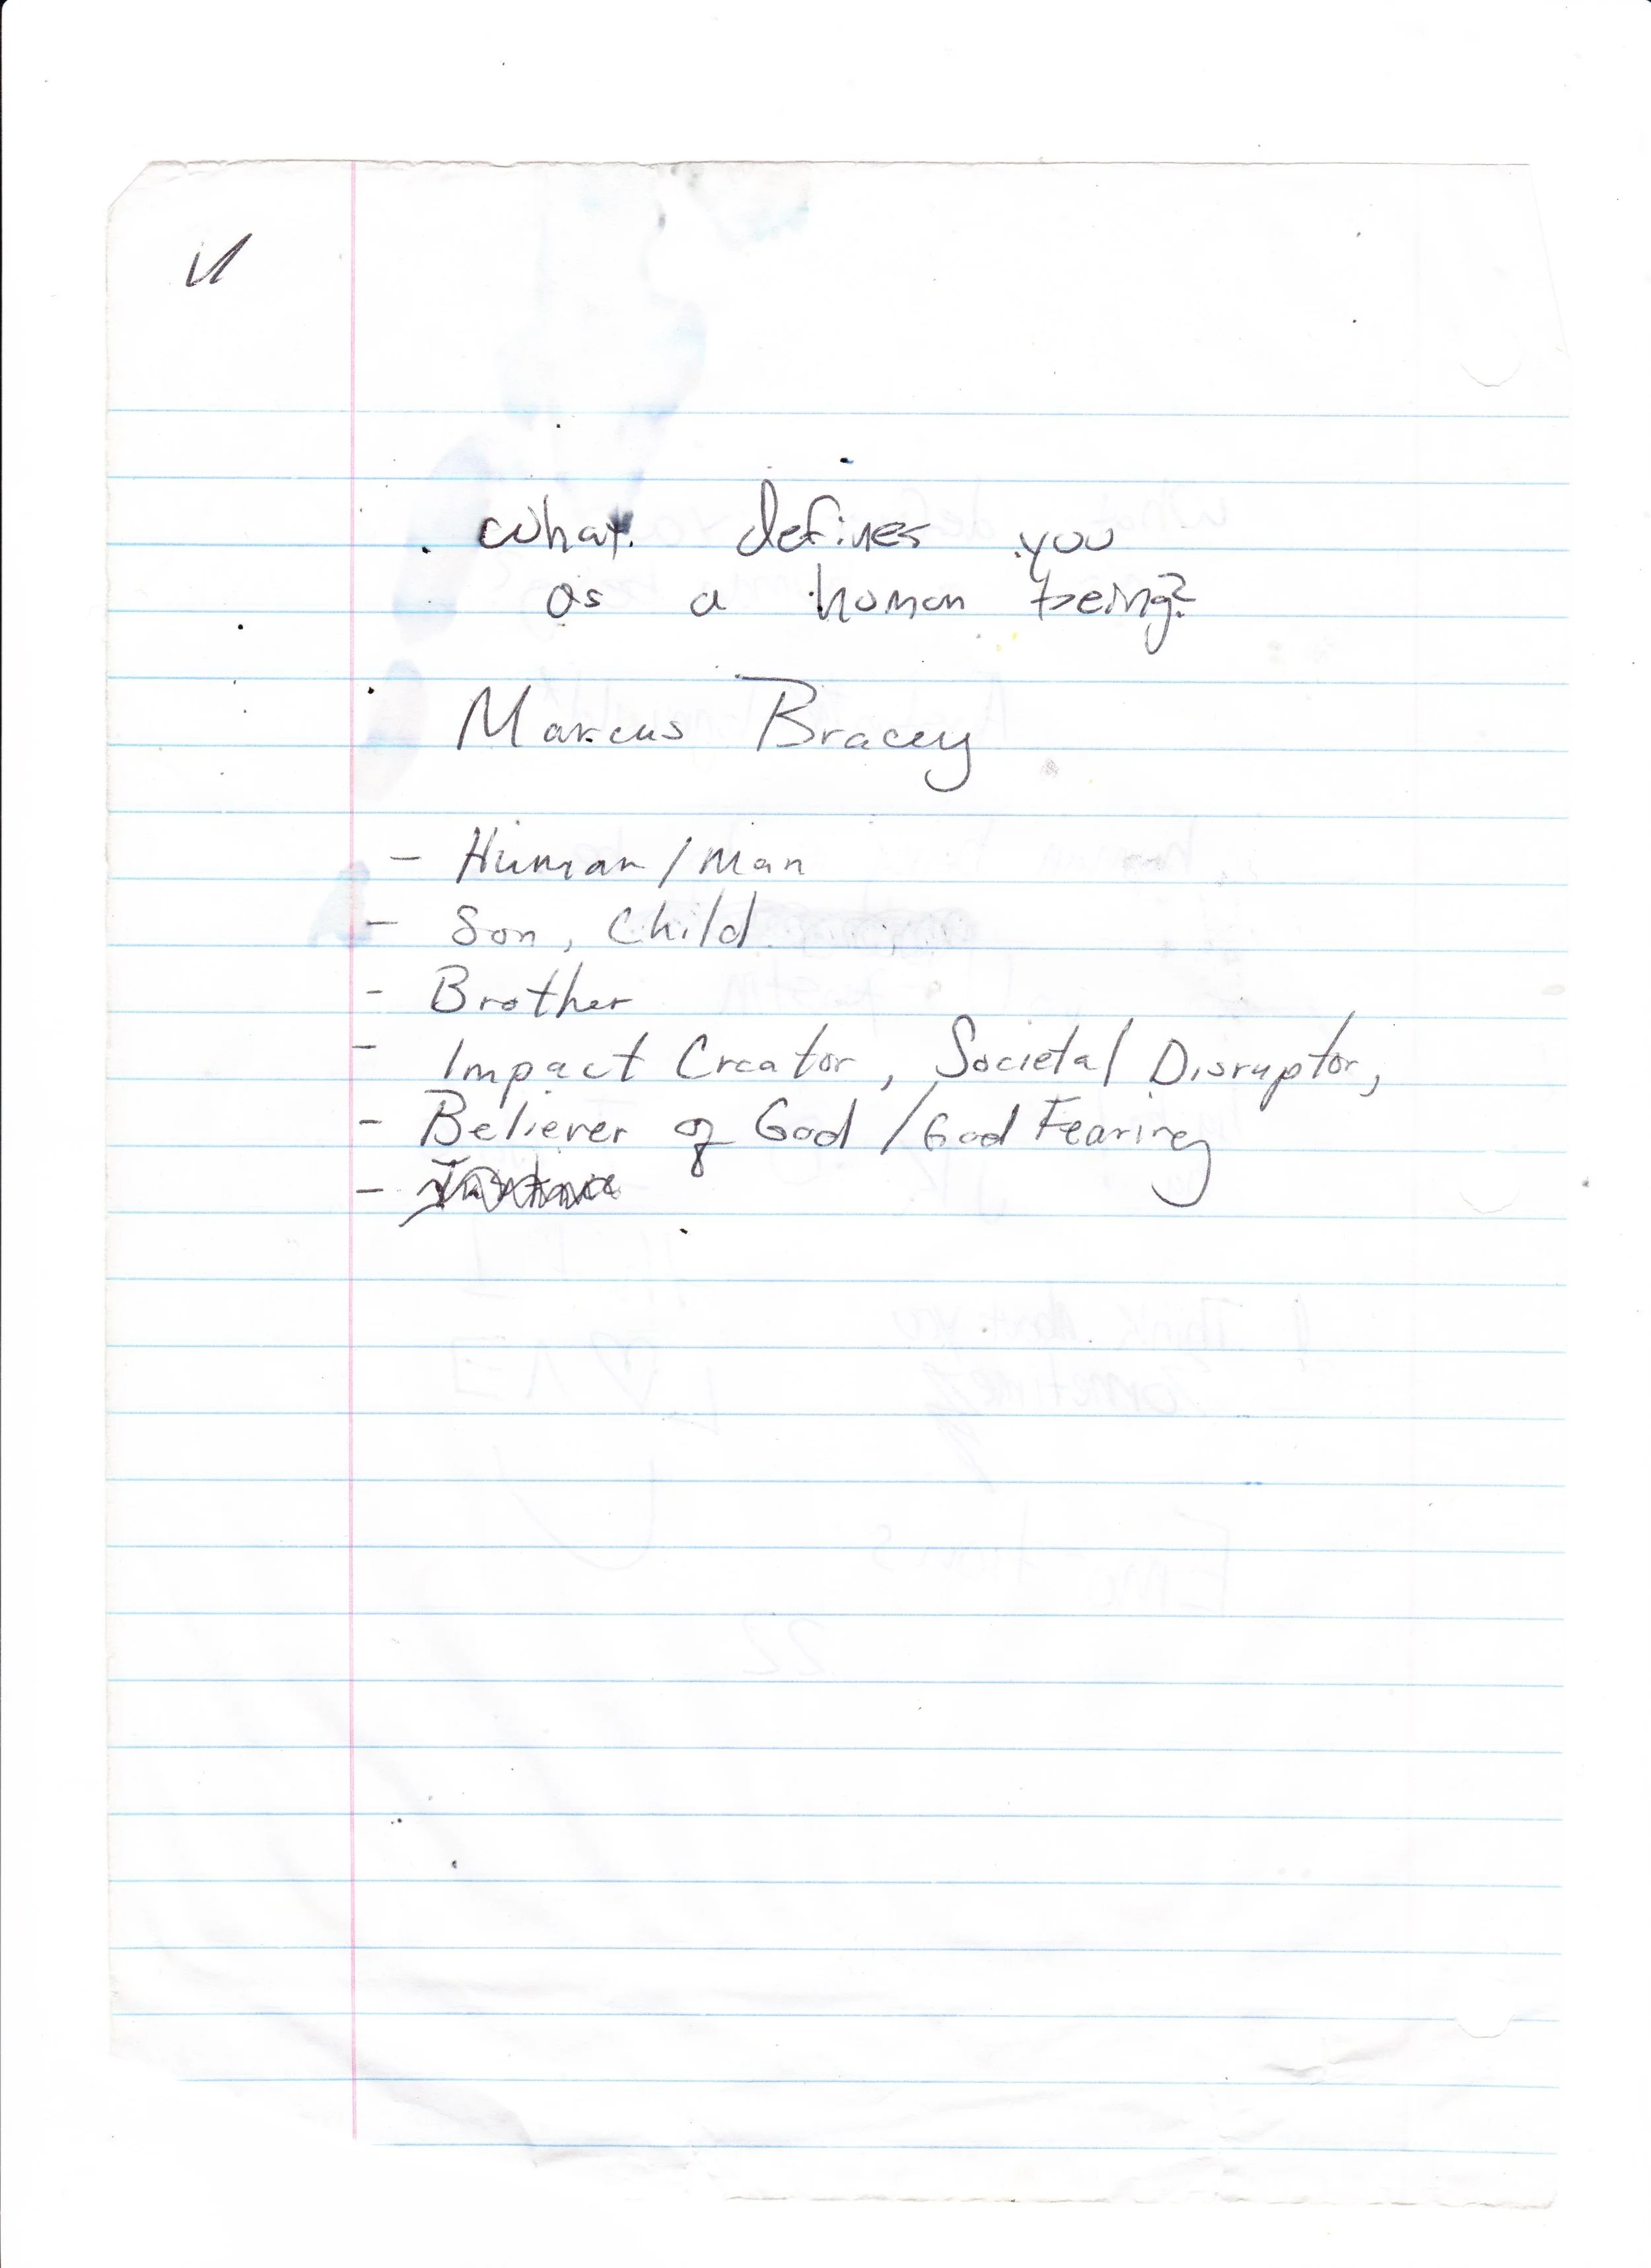 what defines you
as a human being?
Marcus Bracey
- Human / Man
- Son, Child
- Brother
- Impact Creator, Societal Disruptor,
- Believer of God / God Fearing
-